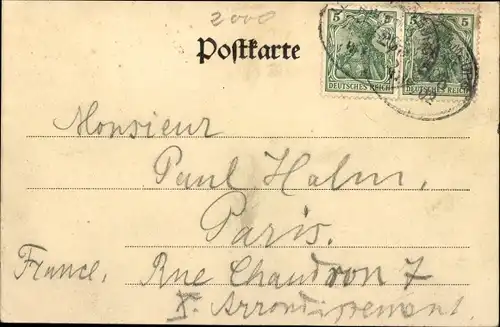 2000
Postkarte
5 5
DEUTSCHES REICH
5 5
DEUTSCHES REICH
Monsieur
Paul Halm,
Paris.
France, Rue Chaudron 7
X. Arrondissement.